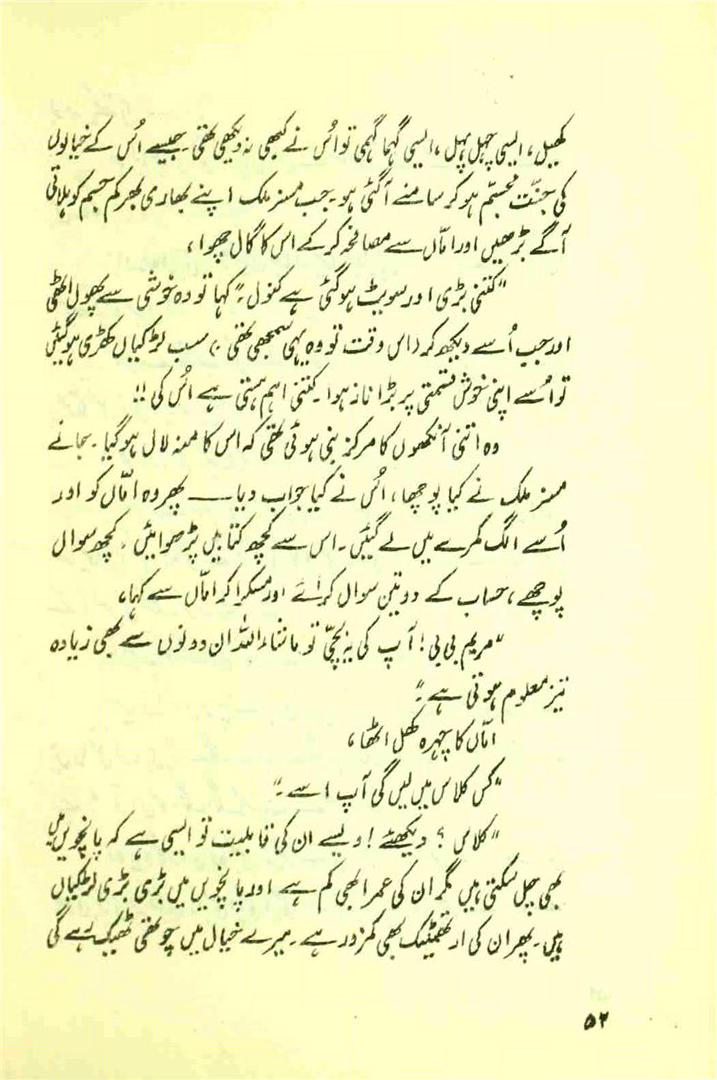 کھیل، ایسی چہل پہل، ایسی گہما گہمی تو اُس نے کبھی نہ دیکھی تھی۔ جیسے اُس کے خیالوں
کی جنّت مجسّم ہو کر سامنے آ گئی ہو۔ جب مسز ملک اپنے بھاری بھرکم جسم کو ہلاتی
آگے بڑھیں اور امّاں سے مصافحہ کر کے اس کا گال چھوا،
"کتنی بڑی اور سویٹ ہو گئی ہے کنول۔" کہا تو وہ خوشی سے پھول اٹھی
اور جب اُسے دیکھ کر (اس وقت تو وہ یہی سمجھی تھی۔) سب لڑکیاں کھڑی ہو گئیں
تو اُسے اپنی خوش قسمتی پر بڑا ناز ہوا۔ کتنی اہم ہستی ہے اُس کی!!
وہ اتنی آنکھوں کا مرکز بنی ہوئی تھی کہ اس کا منہ لال ہو گیا۔ نجانے
مسز ملک نے کیا پوچھا، اُس نے کیا جواب دیا — پھر وہ امّاں کو اور
اُسے الگ کمرے میں لے گئیں۔ اس سے کچھ کتابیں پڑھوائیں۔ کچھ سوال
پوچھے، حساب کے دو تین سوال کرائے اور مسکرا کر امّاں سے کہا،
"مریم بی بی! آپ کی یہ بچّی تو ماشاءاللہ ان دونوں سے بھی زیادہ
تیز معلوم ہوتی ہے۔"
امّاں کا چہرہ کھل اٹھا،
"کس کلاس میں لیں گی آپ اسے۔"
"کلاس؟ دیکھئے! ویسے ان کی قابلیت تو ایسی ہے کہ پانچویں میں
بھی چل سکتی ہیں مگر ان کی عمر ابھی کم ہے اور پانچویں میں بڑی بڑی لڑکیاں
ہیں۔ پھر ان کی ارتھمیٹک بھی کمزور ہے۔ میرے خیال میں چوتھی ٹھیک رہے گی
۵۲